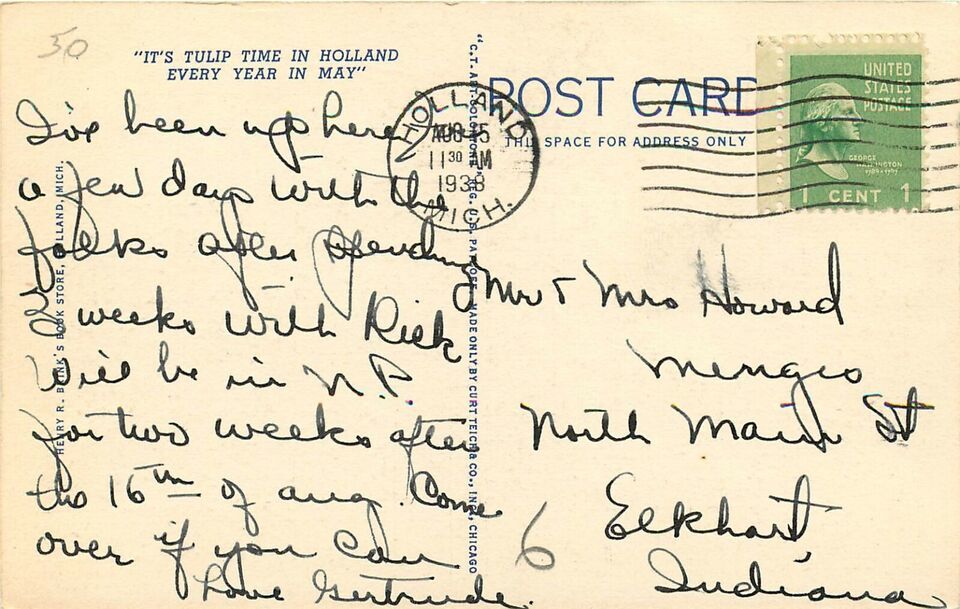 50
"IT'S TULIP TIME IN HOLLAND
EVERY YEAR IN MAY"
POST CARD
THIS SPACE FOR ADDRESS ONLY
HOLLAND
AUG 15
11 30 AM
1938
MICH.
UNITED
STATES
POSTAGE
GEORGE
WASHINGTON
1789-1797
1 CENT 1
I've been up here
a few days with the
folks after spending
2 weeks with Rick
Will be in N.P.
for two weeks after
the 16th of Aug. Come
over if you can
Love Gertrude.
Mr & Mrs Howard
Menges
North Main St
Elkhart,
Indiana
6
HENRY R. BRINK'S BOOK STORE, HOLLAND, MICH.
"C.T. ART-COLORTONE" REG. U.S. PAT. OFF. MADE ONLY BY CURT TEICH & CO., INC., CHICAGO